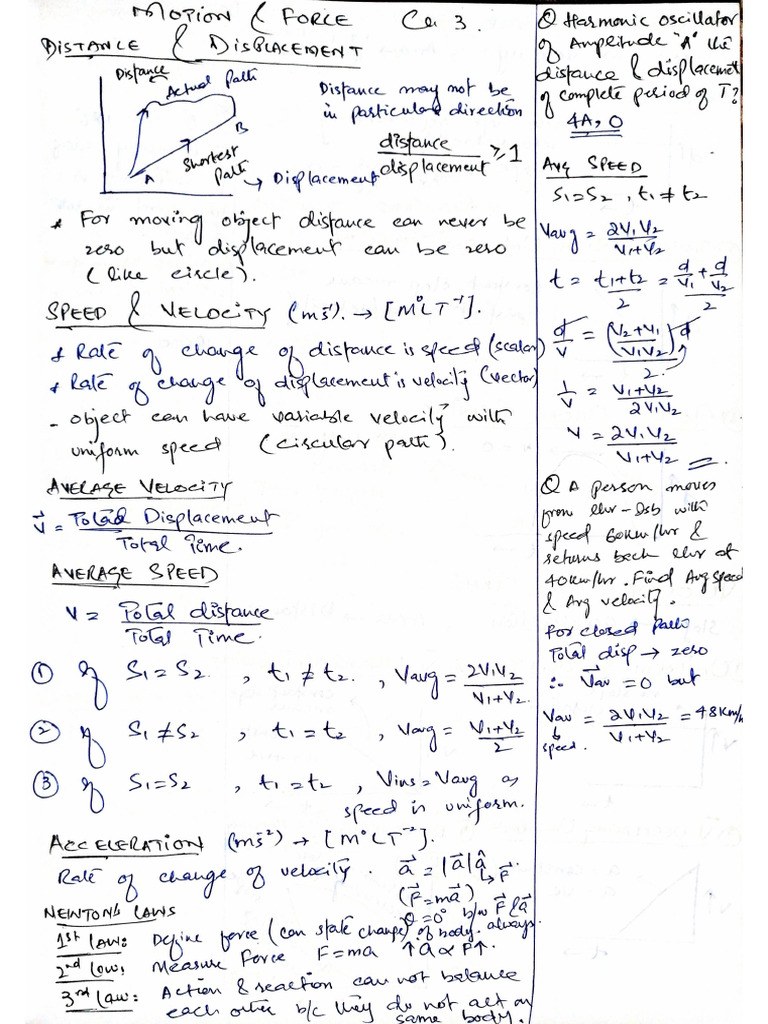 MOTION & FORCE Ch 3.
DISTANCE & DISPLACEMENT
Distance
Actual Path
B
A
Shortest
Path → Displacement
Distance may not be
in particular direction
distance
displacement ≥ 1
* For moving object distance can never be
zero but displacement can be zero
(like circle).
SPEED & VELOCITY (ms⁻¹). → [M⁰LT⁻¹].
* Rate of change of distance is speed (scalar)
* Rate of change of displacement is velocity (vector)
- object can have variable velocity with
uniform speed (circular path).
AVERAGE VELOCITY
v⃗ = Total Displacement
Total Time.
AVERAGE SPEED
V = Total distance
Total Time.
① If S₁ = S₂ , t₁ ≠ t₂ , Vavg = 2V₁V₂
V₁+V₂.
② If S₁ ≠ S₂ , t₁ = t₂ , Vavg = V₁+V₂
2
③ If S₁ = S₂ , t₁ = t₂ , Vins = Vavg as
speed is uniform.
ACCELERATION (ms⁻²) → [M⁰LT⁻²].
Rate of change of velocity. a⃗ = |a⃗| â
↳ F⃗.
(F⃗ = ma⃗)
θ = 0° b/w F⃗ & a⃗
always.
NEWTON'S LAWS
1st LAW: Define force (can state change) of body.
2nd Law: Measure Force F = ma ↑a ∝ F↑.
3rd Law: Action & reaction can not balance
each other b/c they do not act on
same body.
Q Harmonic oscillator
of Amplitude "A" the
distance & displacement
of complete period of T?
4A, 0
AVG SPEED
S₁ = S₂ , t₁ ≠ t₂
Vavg = 2V₁V₂
V₁+V₂
t = t₁+t₂ = d/V₁ + d/V₂
2 2
d/V = (V₂+V₁ / V₁V₂) d
2.
1/V = V₁+V₂
2V₁V₂
V = 2V₁V₂
V₁+V₂
Q A person moves
from lhr-Isb with
speed 60km/hr &
returns back lhr at
40km/hr. Find Avg speed
& Avg velocity.
For closed Path
Total disp → zero
∴ V⃗av = 0 but
Vav = 2V₁V₂ = 48 Km/h
speed. V₁+V₂